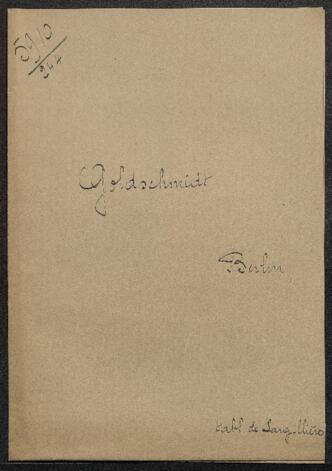 5910
344
Goldschmidt
Berlin
tabl de Largillière